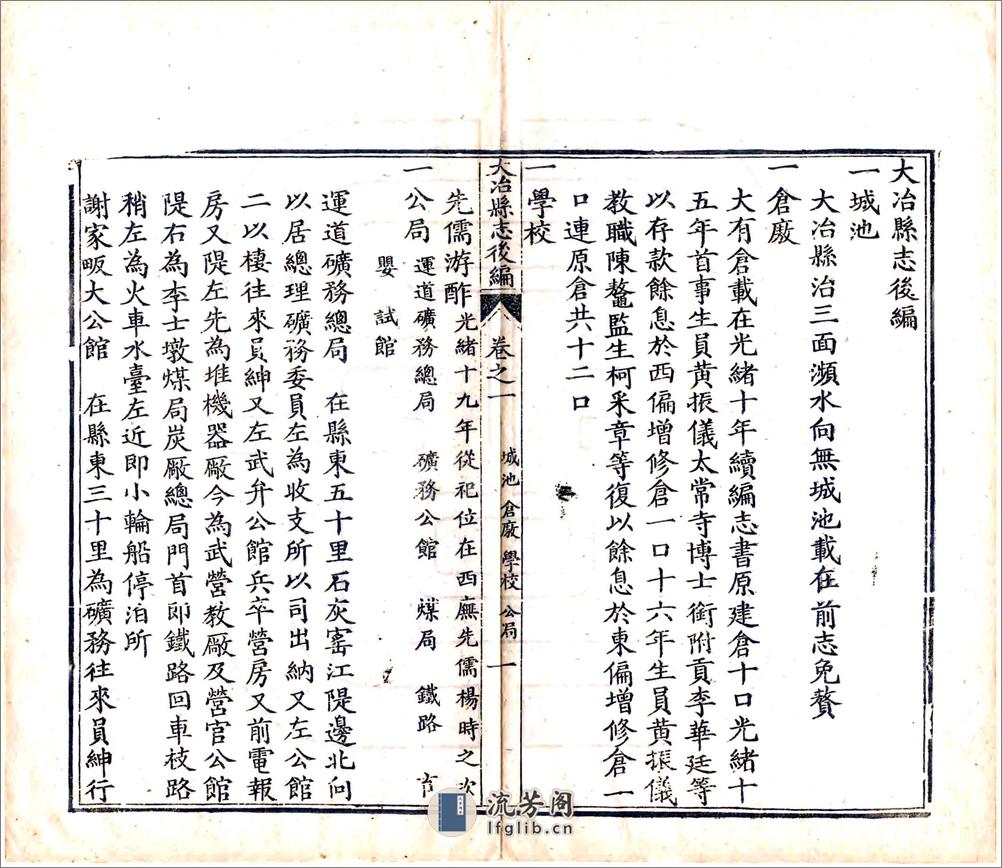 大冶縣志後編
一城池
大冶縣治三面瀕水向無城池載在前志免贅
一倉廒
大有倉載在光緒十年續編志書原建倉十口光緒十
五年首事生員黃振儀太常寺博士銜附貢李華廷等
以存款餘息於西偏增修倉一口十六年生員黃振儀
教職陳鼇監生柯采章等復以餘息於東偏增修倉一
口連原倉共十二口
一學校
大冶縣志後編 卷之一 城池 倉廒 學校 公局 一
先儒游酢光緒十九年從祀位在西廡先儒楊時之次
一公局 運道礦務總局 礦務公館 煤局 鐵路
嬰 試館
運道礦務總局 在縣東五十里石灰窰江隄邊北向
以居總理礦務委員左為收支所以司出納又左公館
二以棲往來員紳又左武弁公館兵卒營房又前電報
房又隄左先為堆機器廠今為武營教廠及營官公館
隄右為李士墩煤局炭廠總局門首即鐵路回車枝路
稍左為火車水臺左近即小輪船停泊所
謝家畈大公館 在縣東三十里為礦務往來員紳行
流芳阁
lfglib.cn